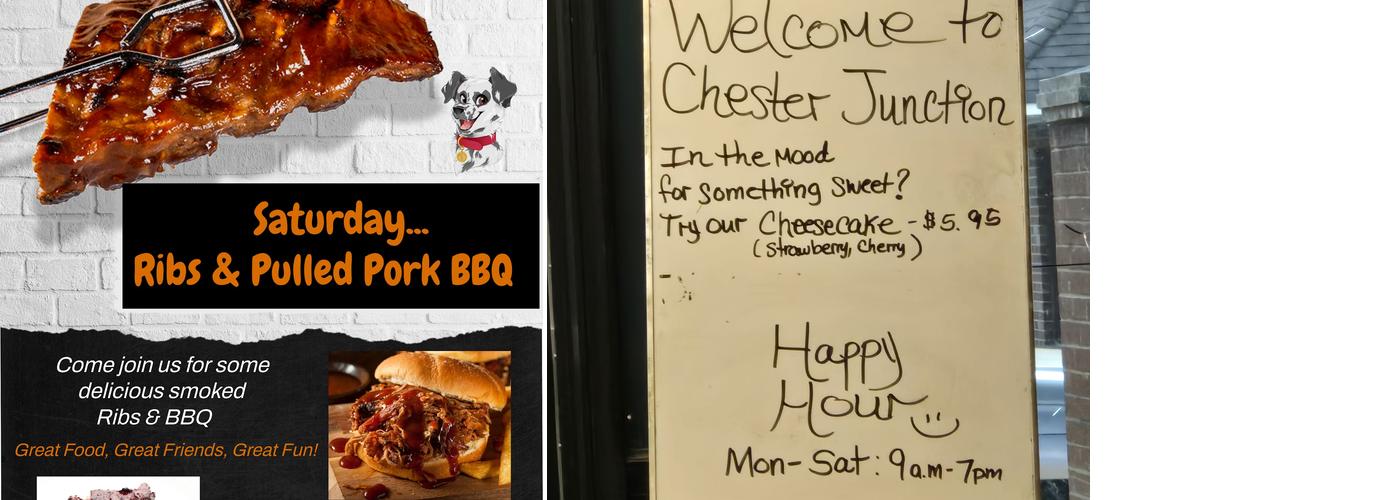 Saturday...
Ribs & Pulled Pork BBQ
Come join us for some
delicious smoked
Ribs & BBQ
Great Food, Great Friends, Great Fun!
Welcome to
Chester Junction
In the Mood
for something sweet?
Try our Cheesecake - $5.95
(Strawberry, Cherry)
Happy
Hour
Mon-Sat: 9a.m-7pm